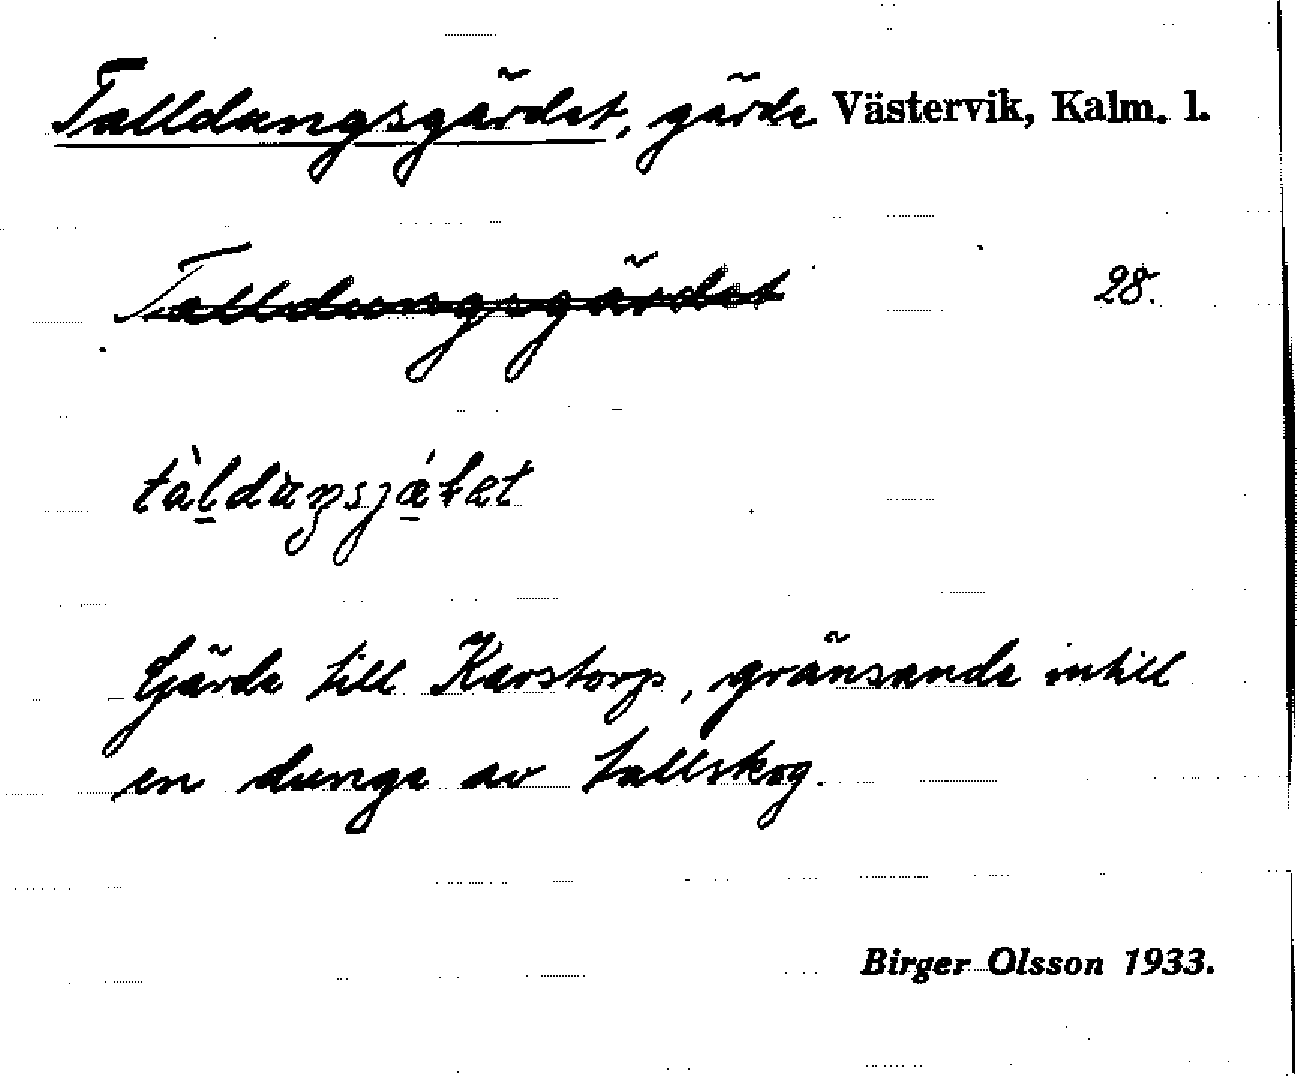 Talldungsgärdet, gärde Västervik, Kalm. l.
Talldungsgärdet 28.
Gärde till Karstorp, gränsande intill
en dunge av tallskog.
Birger Olsson 1933.